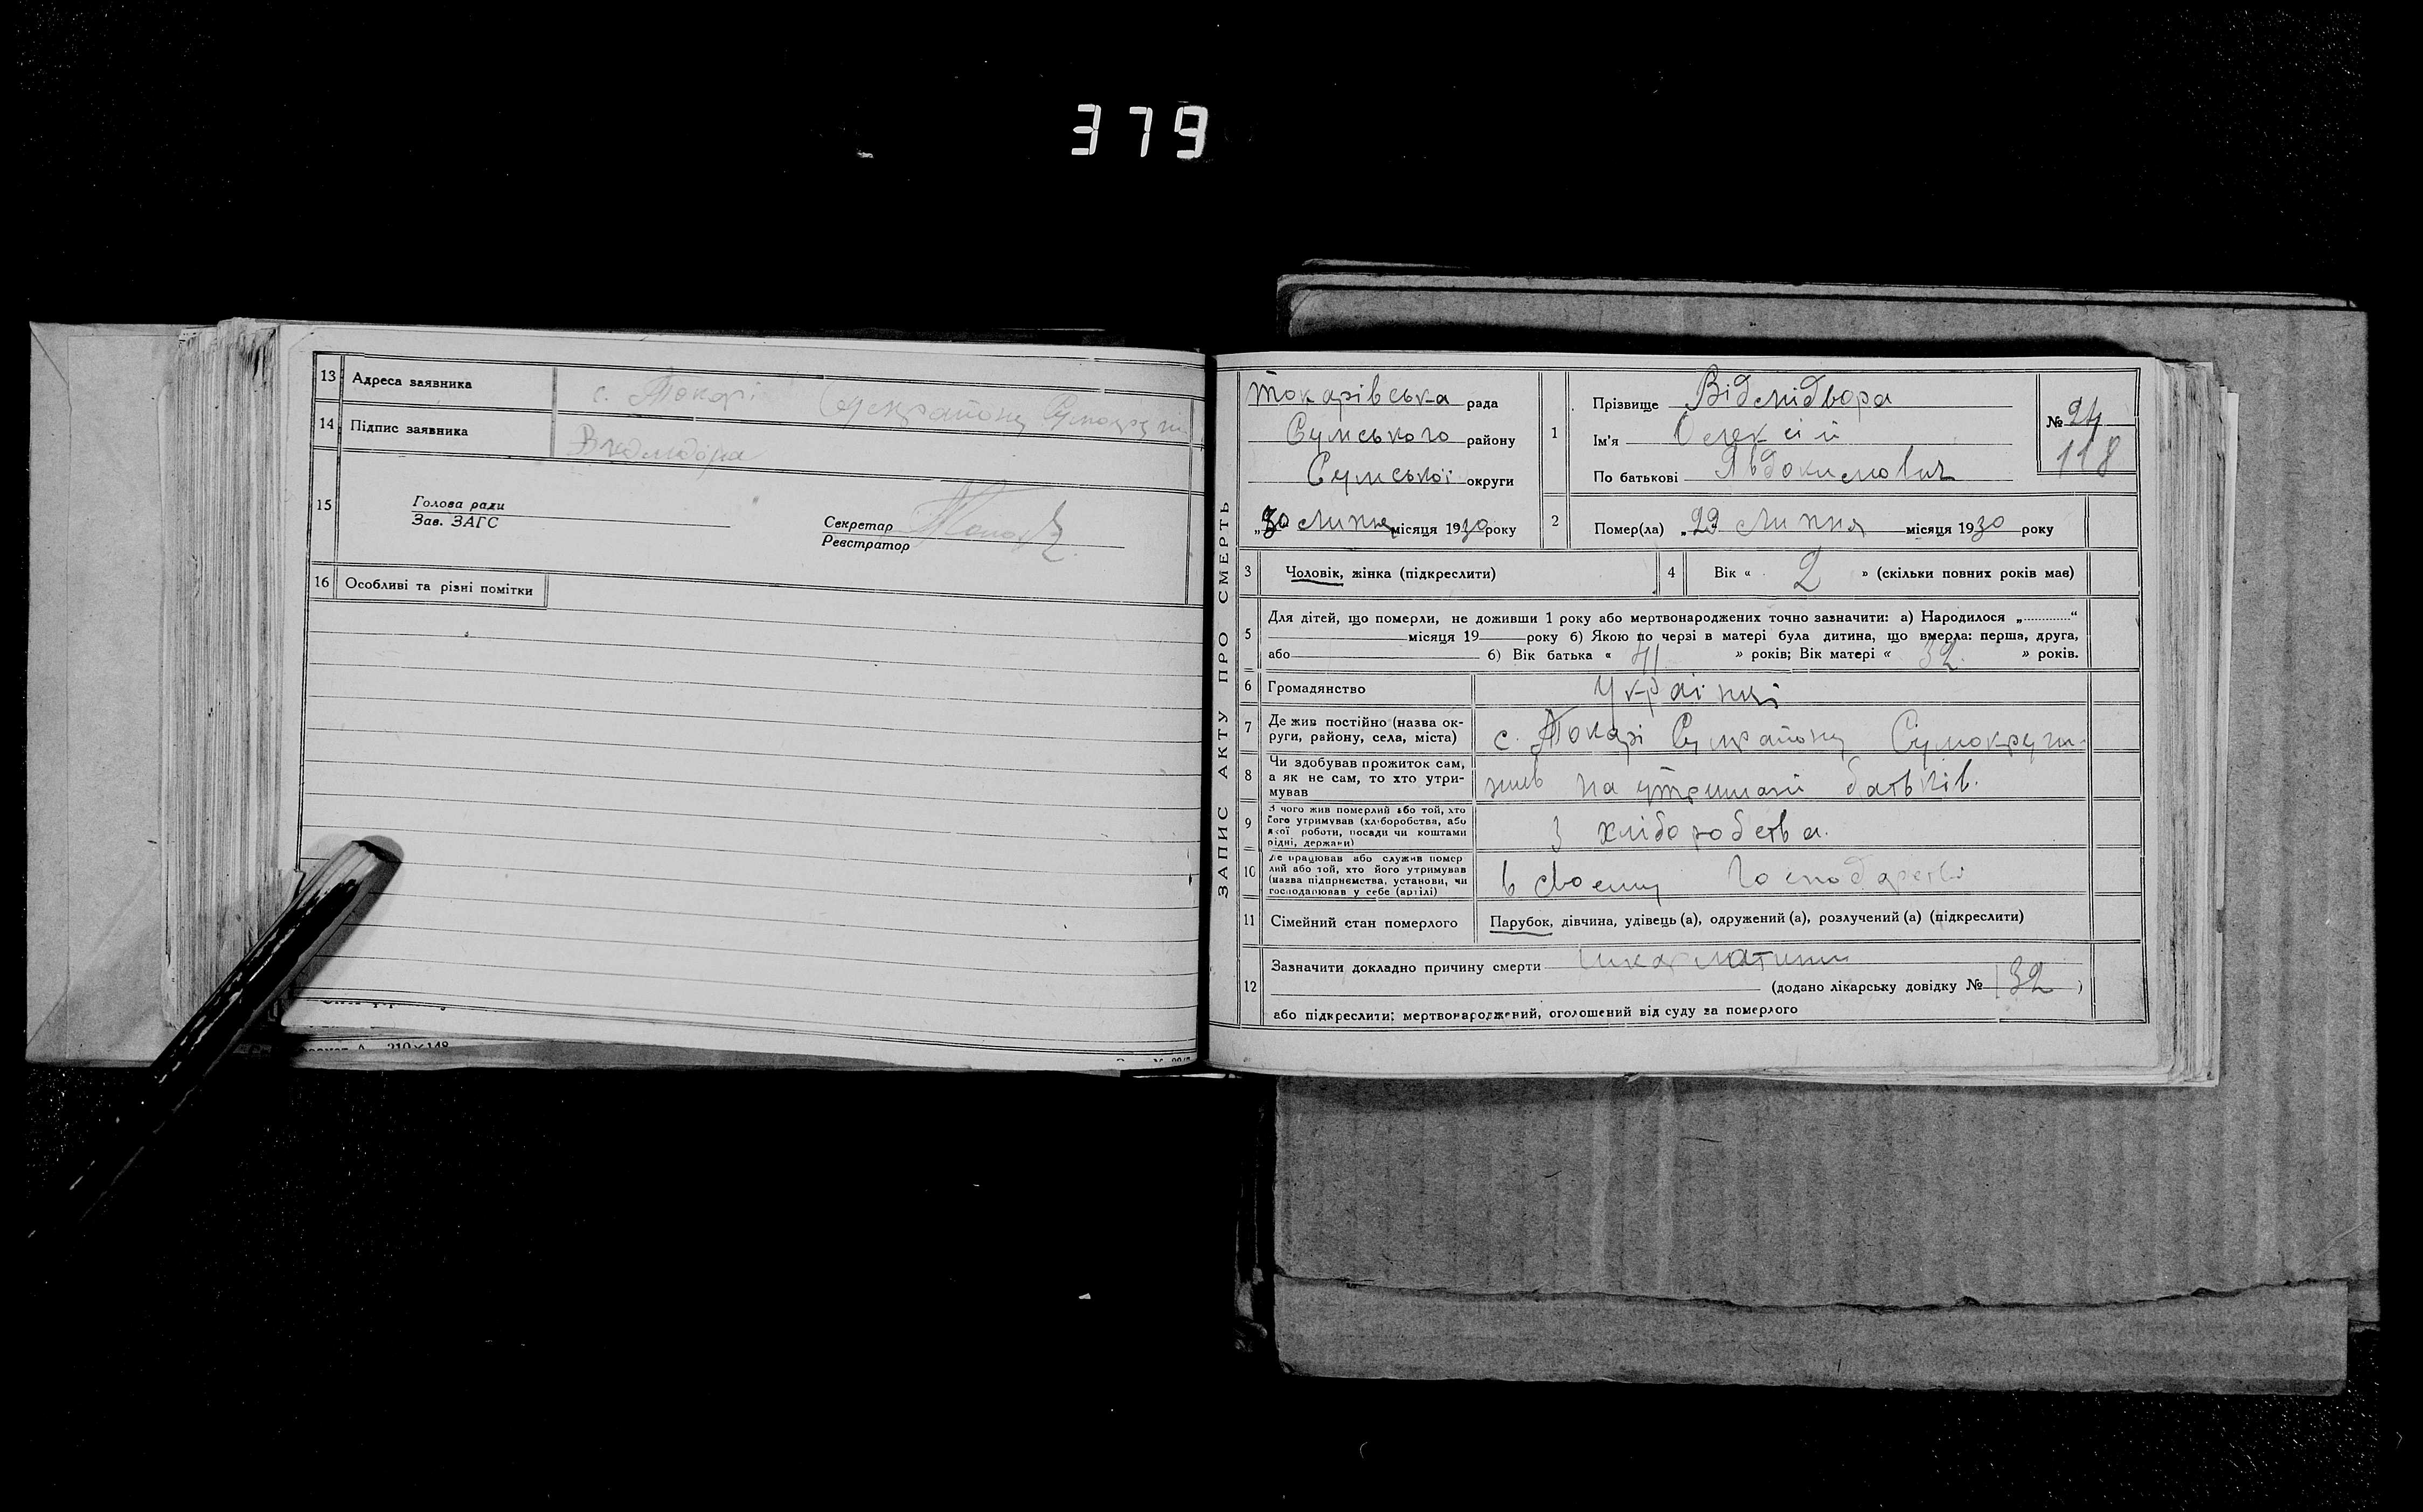 379
13 Адреса заявника с. Токарі Сумрайону Сумокруги
14 Підпис заявника
15 Голова ради
Зав. ЗАГС
Секретар
Реєстратор
16 Особливі та різні помітки
210×148
ЗАПИС АКТУ ПРО СМЕРТЬ
Токарівська рада
Сумського району
Сумської округи
„30 Липня місяця 1930 року
1 Прізвище Відмідвора
Ім'я Олексій
По батькові Явдокимович
№ 24
118
2 Помер(ла) „29 Липня місяця 1930 року
3 Чоловік, жінка (підкреслити)
4 Вік « 2 » (скільки повних років має)
5 Для дітей, що померли, не доживши 1 року або мертвонароджених точно зазначити: а) Народилося „............“
місяця 19 року б) Якою по черзі в матері була дитина, що вмерла: перша, друга,
або б) Вік батька « 41 » років; Вік матері « 32 » років.
6 Громадянство Українці
7 Де жив постійно (назва ок-
руги, району, села, міста) с. Токарі Сумрайону Сумокруги
8 Чи здобував прожиток сам,
а як не сам, то хто утри-
мував жив на утримані батьків.
9 З чого жив померлий або той, хто
його утримував (хліборобства, або
якої роботи, посади чи коштами
рідні, держави) З хліборобства.
10 Де працював або служив помер
лий або той, хто його утримував
(назва підприємства, установи, чи
господарював у себе (артілі) в своєму господарстві
11 Сімейний стан померлого Парубок, дівчина, удівець (а), одружений (а), розлучений (а) (підкреслити)
12 Зазначити докладно причину смерти шкарлатини
(додано лікарську довідку № 132 )
або підкреслити: мертвонароджений, оголошений від суду за померлого